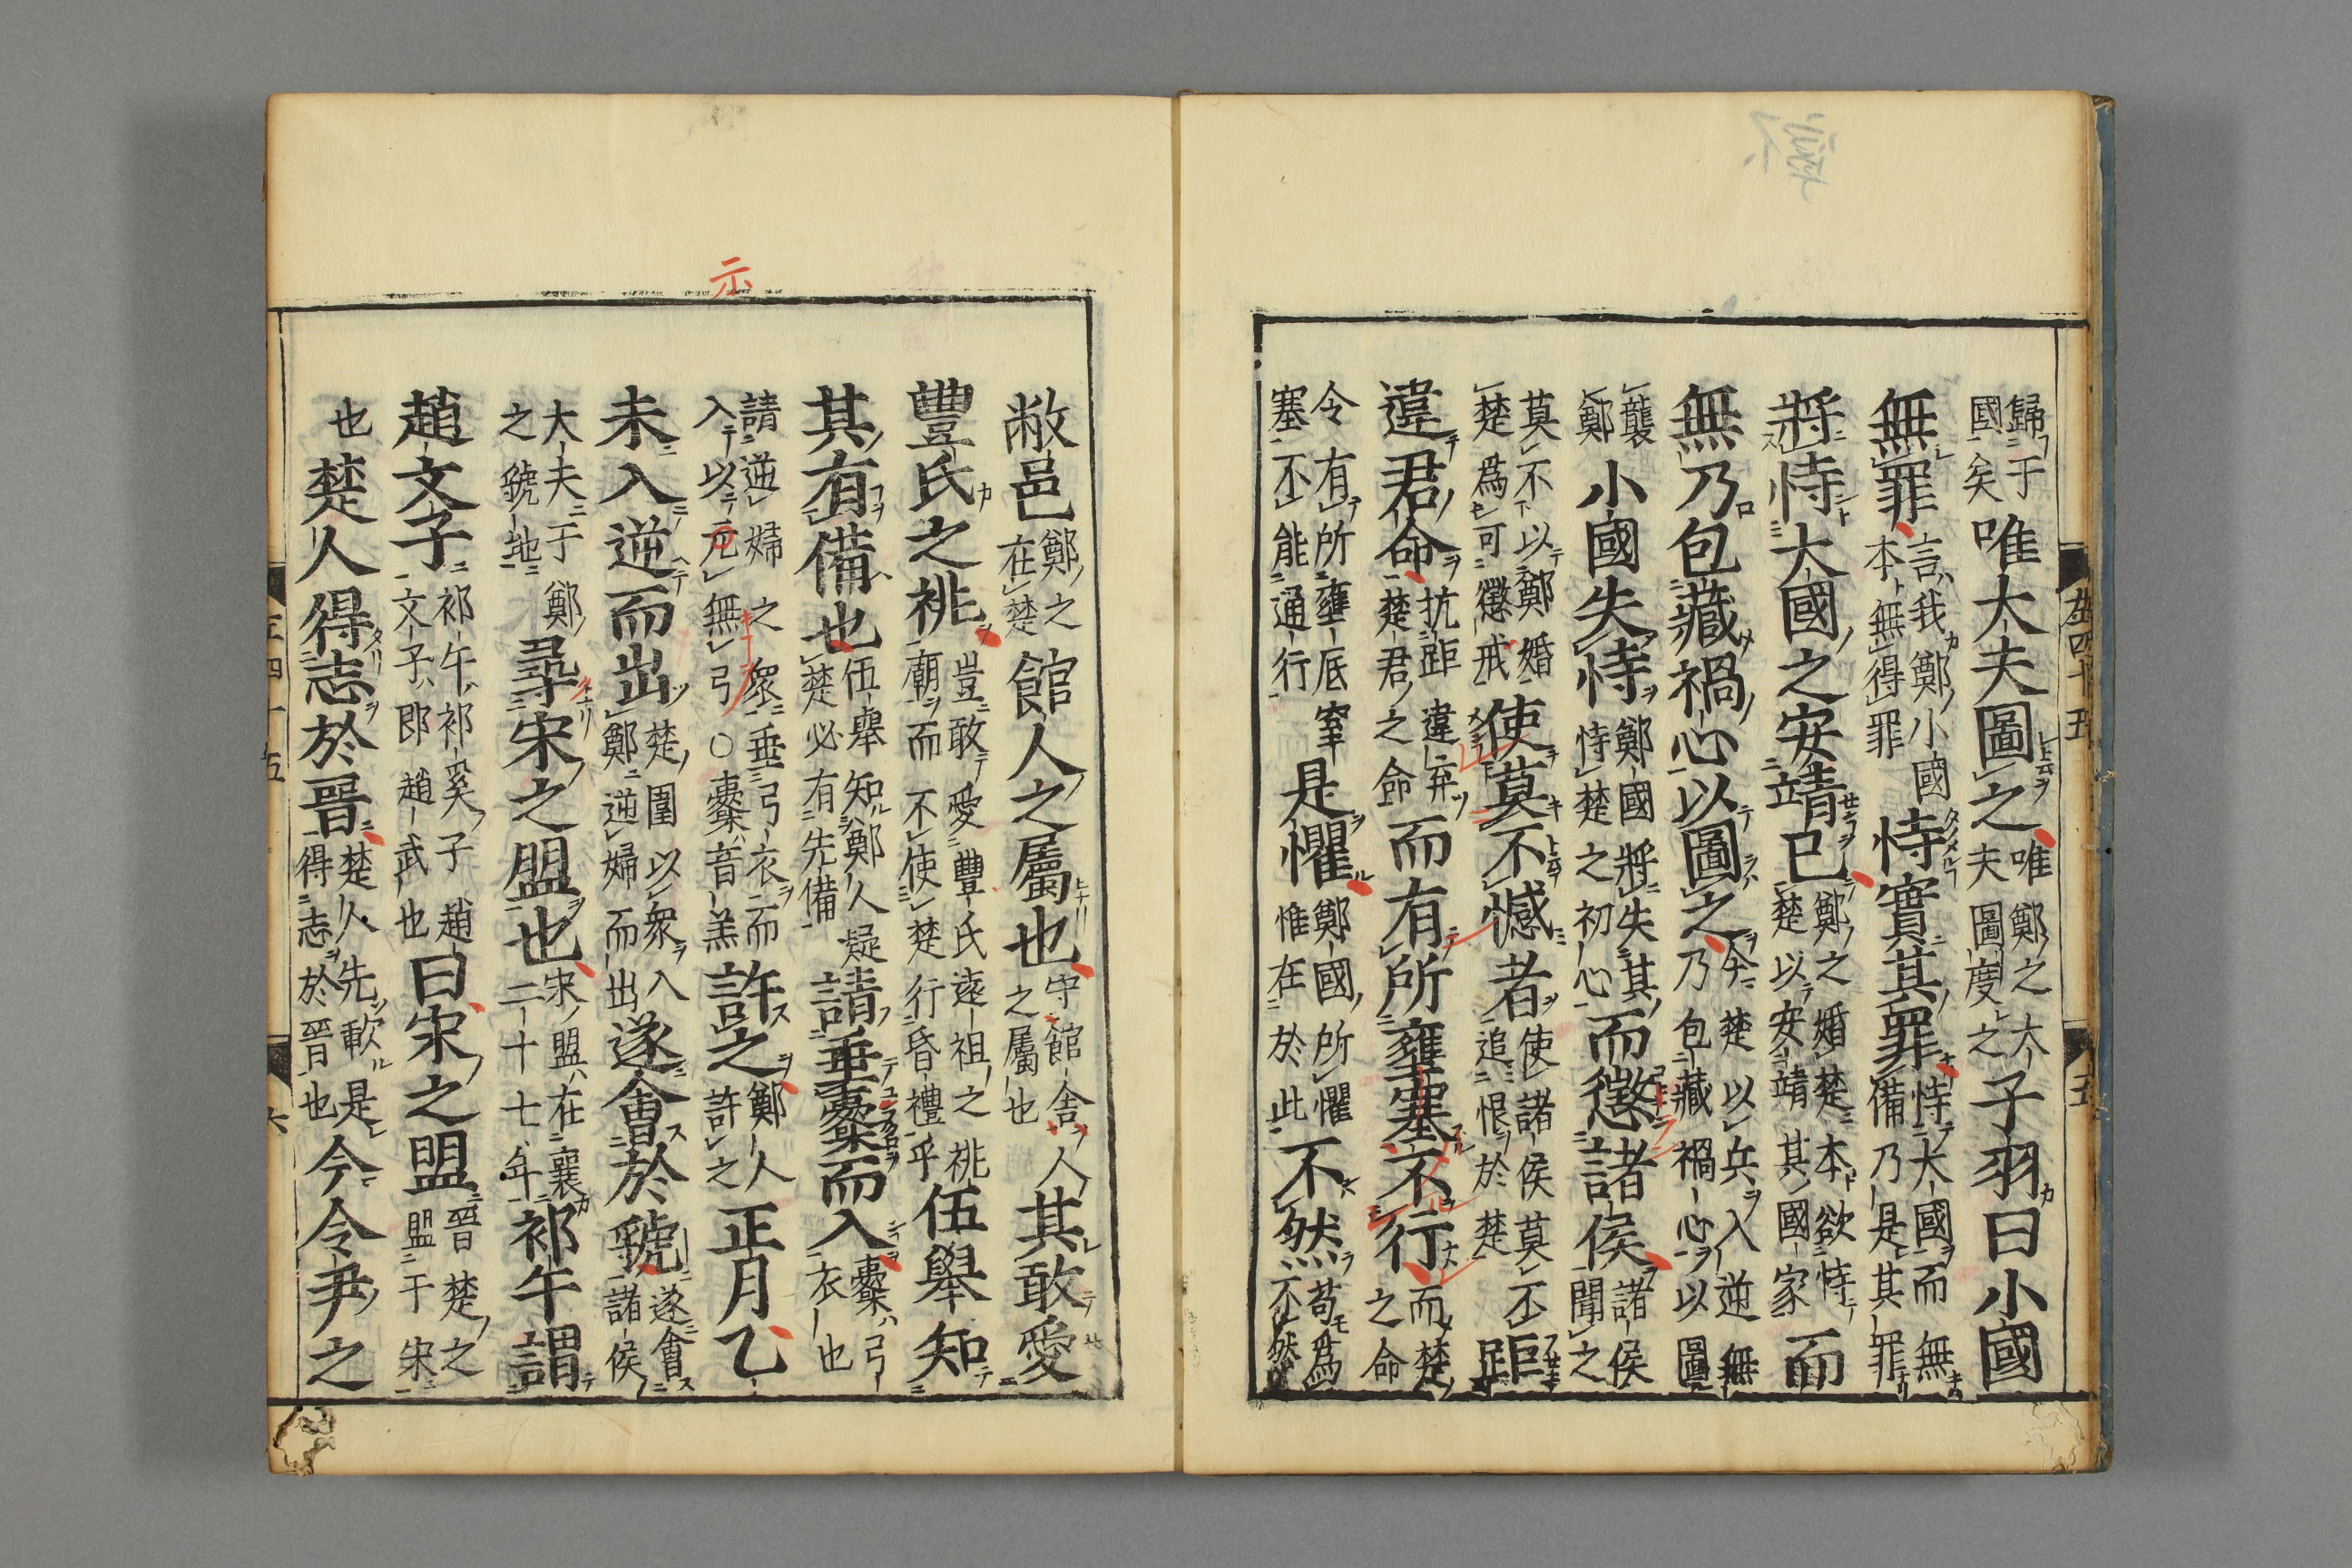 歸于國矣唯大夫圖之唯鄭之大夫圖度之子羽曰小國
無罪言我鄭小國本無得罪恃實其罪恃大國而無備乃是其罪
將恃大國之安靖已鄭之婚楚本欲恃楚以安靖其國家而
無乃包藏禍心以圖之今楚以兵入逆無乃包藏禍心以圖
襲鄭小國失恃鄭國將失其恃楚之初心而懲諸侯諸侯聞之
莫不以鄭婚楚爲可懲戒使莫不憾者使諸侯莫不追恨於楚距
違君命抗距違弃楚君之命而有所壅塞不行而楚之命
令有所壅底窒塞不能通行是懼鄭國所懼惟在於此不然苟爲不然
左四十五
五
示
敝邑鄭之在楚館人之屬也守館舍人之屬也其敢愛
豐氏之祧豈敢愛豐氏遠祖之祧廟而不使楚行昏禮乎伍舉知
其有備也伍舉知鄭人疑楚必有先備請垂櫜而入櫜弓衣也
請逆婦之眾垂弓衣而入以元無弓○櫜音羔許之鄭人許之正月乙
未入逆而出楚圍以眾入鄭逆婦而出遂會於虢遂會諸侯
大夫于鄭之虢地尋宋之盟也宋盟在襄二十七年祁午謂
趙文子祁午祁奚子趙文子即趙武也曰宋之盟晉楚之盟于宋
也楚人得志於晉楚人先歃是得志於晉也今令尹之